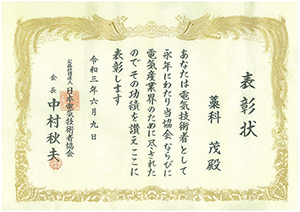 表彰状
藁科 茂殿
あなたは電気技術者として
永年にわたり当協会ならびに
電気産業界のために尽された
のでその功績を讃えここに
表彰します
令和三年六月九日
公益社団法人日本電気技術者協会
会長 中村秋夫